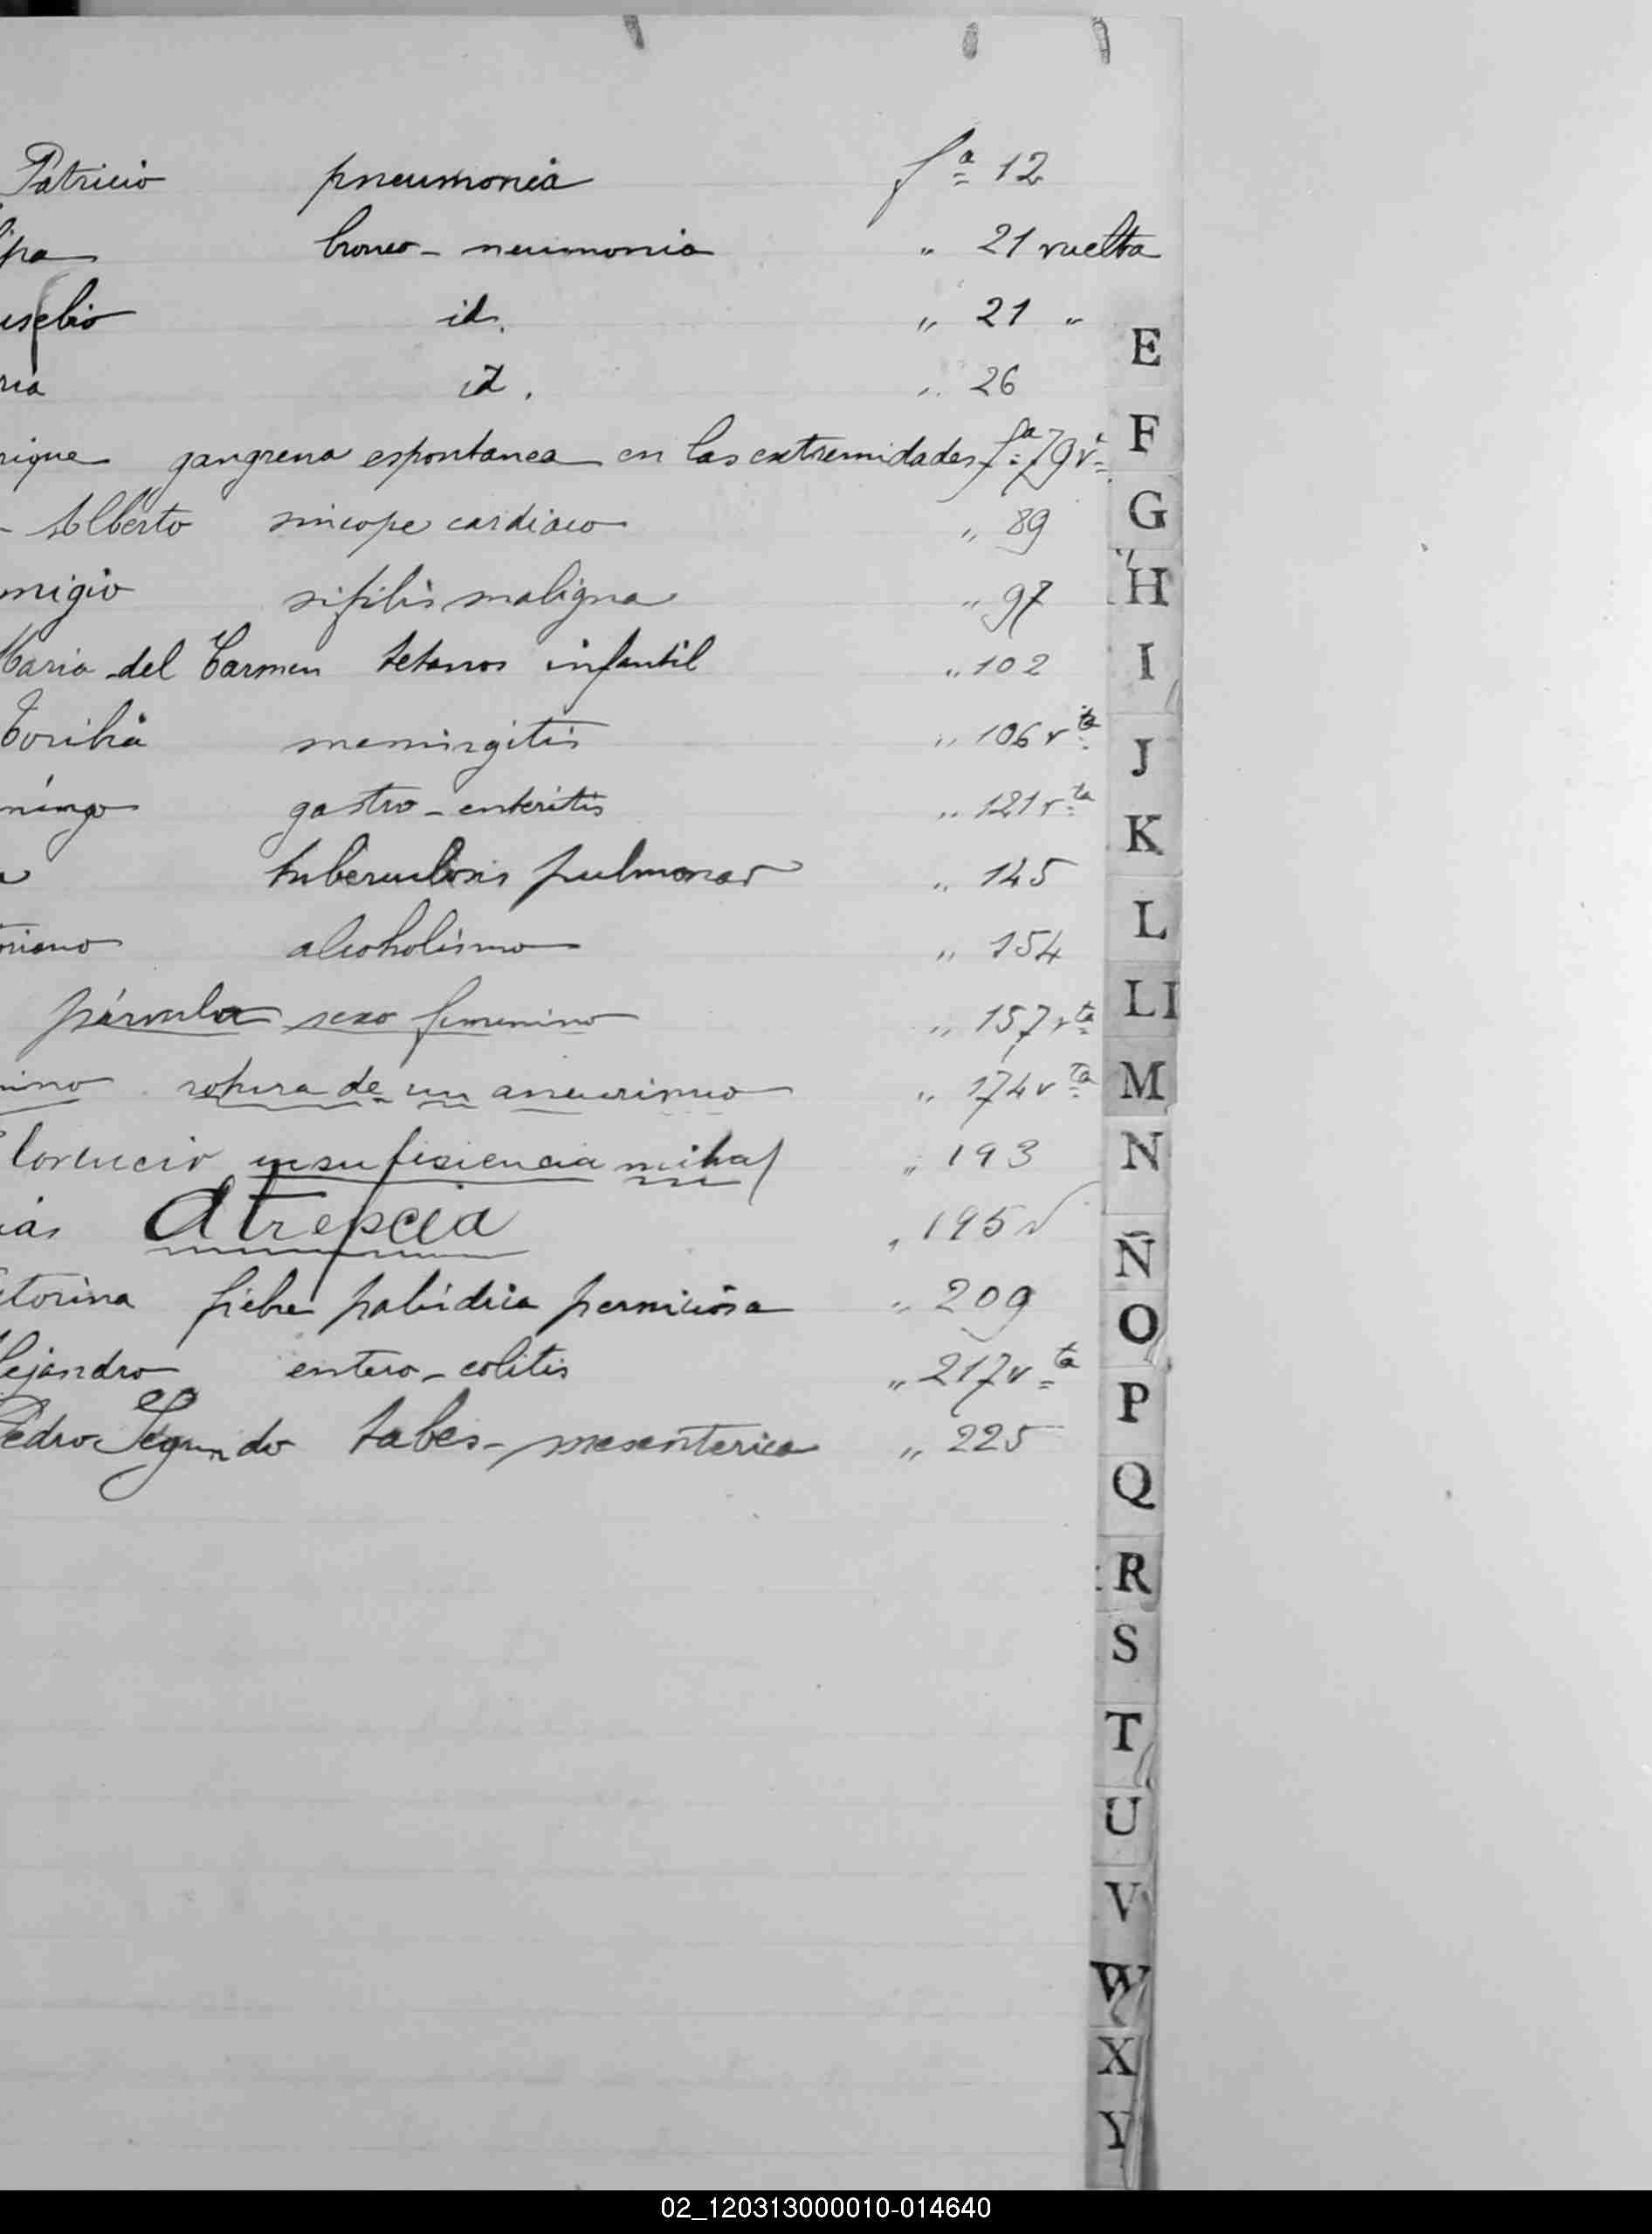 Patricio pneumonia fª 12
lipa bronco-neumonia " 21 vuelta
usebio id. " 21 "
ria id. " 26
rique gangrena espontanea en las extremidades fª 79 vª
- Alberto sincope cardiaco " 89
migio sifilis maligna " 97
Maria del Carmen tetanos infantil " 102
Toribia meningitis " 106 vta
mingo gastro-enteritis " 121 vta
a tuberculosis pulmonar " 145
toriano alcoholismo " 154
párvula sexo femenino " 157 vta
nino rotura de un aneurisma " 174 vta
Florencio insuficiencia mitral " 193
ias Atrepcia " 195 v
ctorina fiebre palúdica perniciosa " 209
lejandro entero-colitis " 217 vta
Pedro Segundo tabes-mesenterica " 225
E
F
G
H
I
J
K
L
LI
M
N
Ñ
O
P
Q
R
S
T
U
V
W
X
Y
02_120313000010-014640